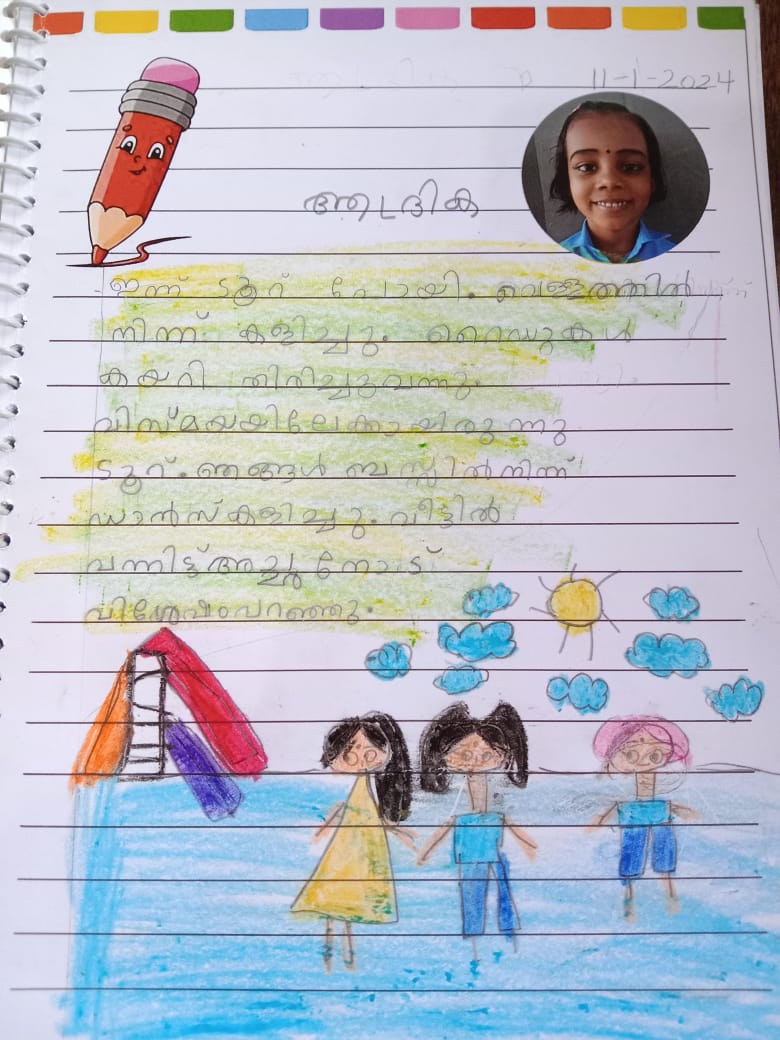 11-1-2024
ആദിക
ഇന്ന് ടൂറ് പോയി. വെള്ളത്തിൽ
നിന്ന് കളിച്ചു. റൈഡുകൾ
കയറി തിരിച്ചുവന്നു.
വിസ്മയയിലേക്കായിരുന്നു
ടൂറ്. ഞങ്ങൾ ബസ്സിൽനിന്ന്
ഡാൻസ് കളിച്ചു. വീട്ടിൽ
വന്നിട്ട് അച്ഛനോട്
വിശേഷംപറഞ്ഞു.